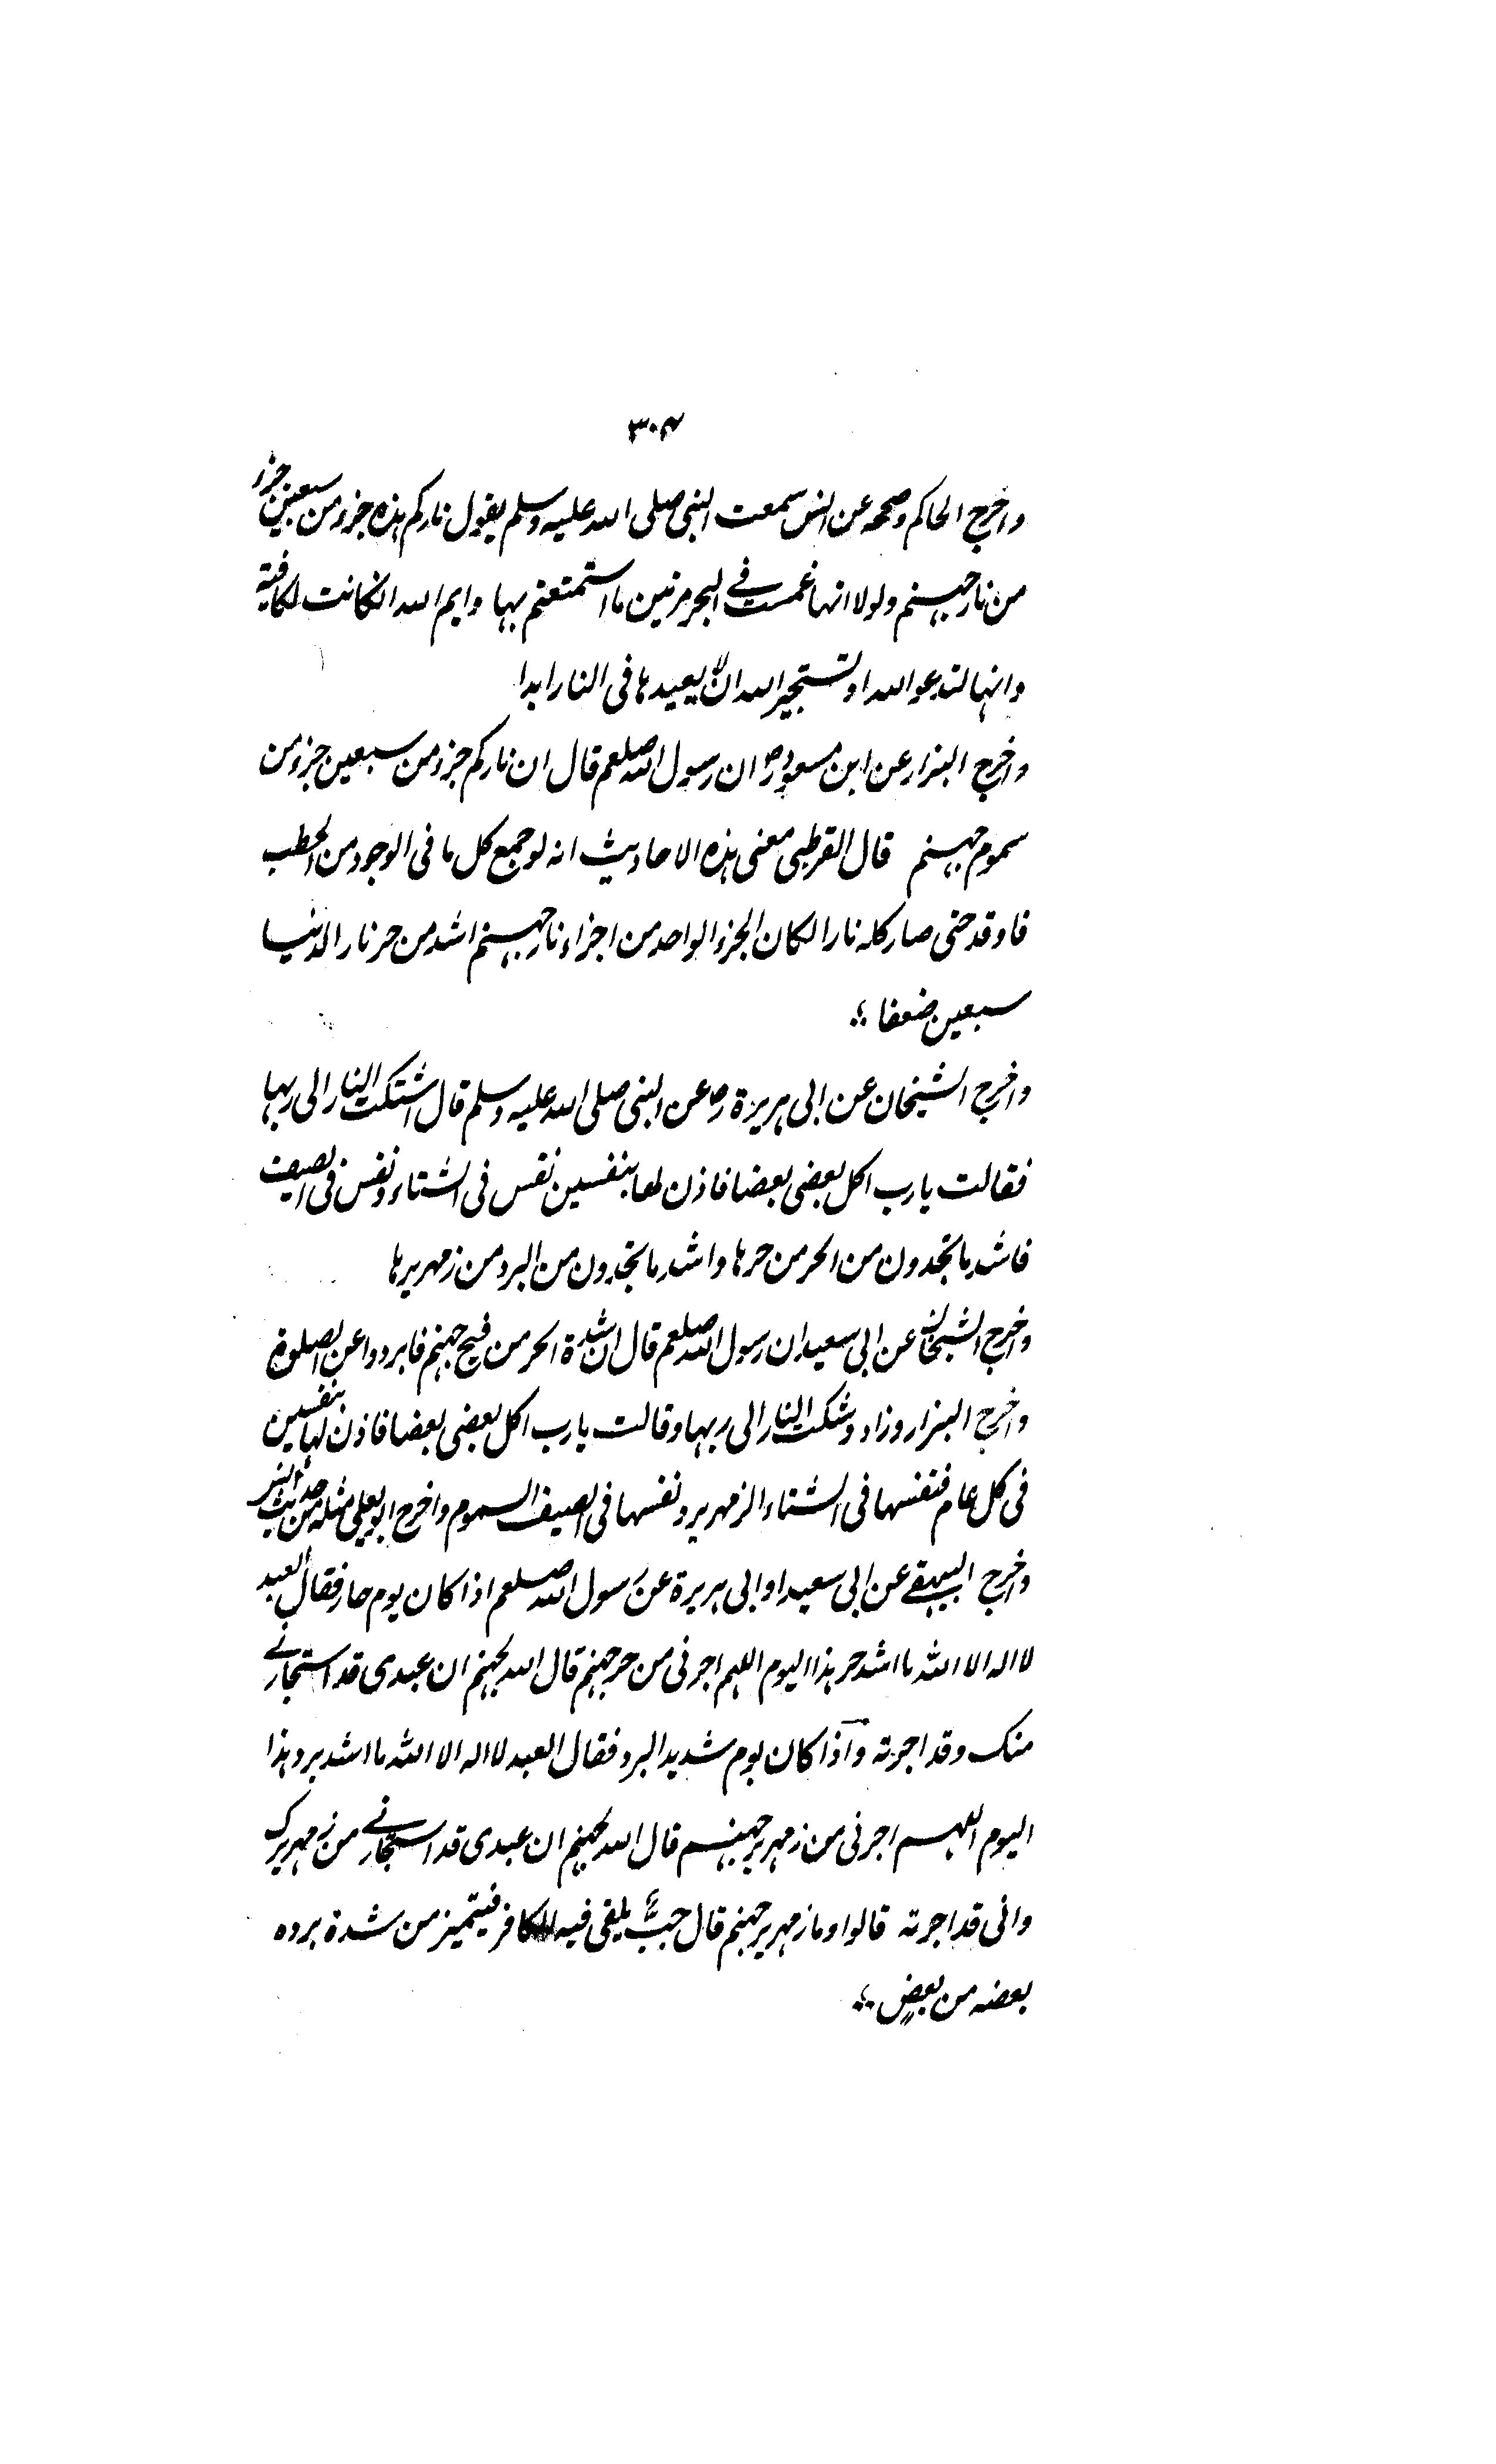 ٣٠٤
واخرج الحاكم وصححه عن انس سمعت النبي صلى الله عليه وسلم يقول ناركم هذه جزء من سبعين جزء
من نار جهنم ولولا انها غمست في البحر مرتين ما استمتعتم بها وايم الله ان كانت لكافية
وانها لتدعو الله او تستجير الله ان لا يعيدها في النار ابدا
واخرج البزار عن ابن مسعود رض ان رسول الله صلعم قال ان ناركم جزء من سبعين جزء من
سموم جهنم قال القرطبي معنى هذه الاحاديث انه لو جمع كل ما في الوجود من الحطب
فاوقد حتى صار كله نارا لكان الجزء الواحد من اجزاء نار جهنم اشد من حر نار الدنيا
سبعين ضعفا ؛
واخرج الشيخان عن ابي هريرة رض عن النبي صلى الله عليه وسلم قال اشتكت النار الى ربها
فقالت يا رب اكل بعضى بعضا فاذن لها بنفسين نفس في الشتاء ونفس في الصيف
فاشد ما تجدون من الحر من حرها واشد ما تجدون من البرد من زمهريرها
واخرج الشيخان عن ابي سعيد ان رسول الله صلعم قال ان شدة الحر من فيح جهنم فابردوا عن الصلوة
واخرج البزار وزاد وشكت النار الى ربها وقالت يا رب اكل بعضى بعضا فاذن لها بنفسين
في كل عام فنفسها في الشتاء الزمهرير ونفسها في الصيف السموم واخرج ابو يعلى مثله من حديث انس
واخرج البيهقي عن ابي سعيد او ابي هريرة عن رسول الله صلعم اذا كان يوم حار فقال العبد
لا اله الا الله ما اشد حر هذا اليوم اللهم اجرنى من حر جهنم قال الله لجهنم ان عبدى قد استجارنى
منك وقد اجرته واذا كان يوم شديد البرد فقال العبد لا اله الا الله ما اشد برد هذا
اليوم اللهم اجرنى من زمهرير جهنم قال الله لجهنم ان عبدى قد استجارنى من زمهريرك
وانى قد اجرته قالوا وما زمهرير جهنم قال جبّ يلقى فيه الكافر فيتميز من شدة برده
بعضه من بعضٍ ؛